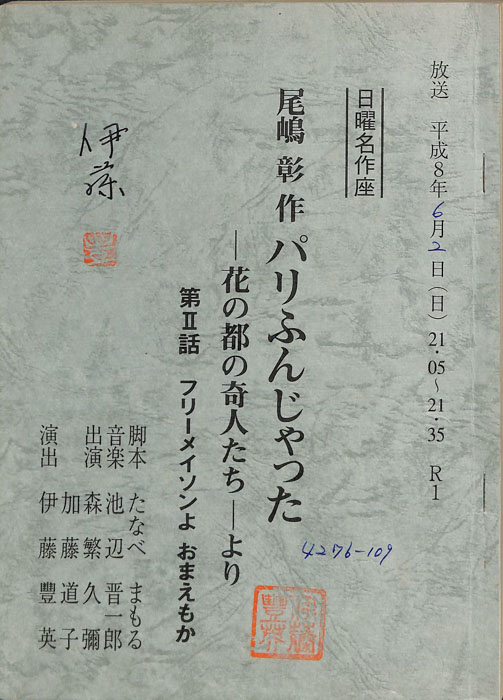 放送 平成8年6月2日(日)21・05〜21・35 R1
日曜名作座
尾嶋彰作 パリふんじゃった
―花の都の奇人たち―より
第Ⅱ話 フリーメイソンよ おまえもか
脚本 たなべ まもる
音楽 池辺晋一郎
出演 森繁久彌
加藤道子
演出 伊藤豐英
伊藤
4276-109
伊藤豐英